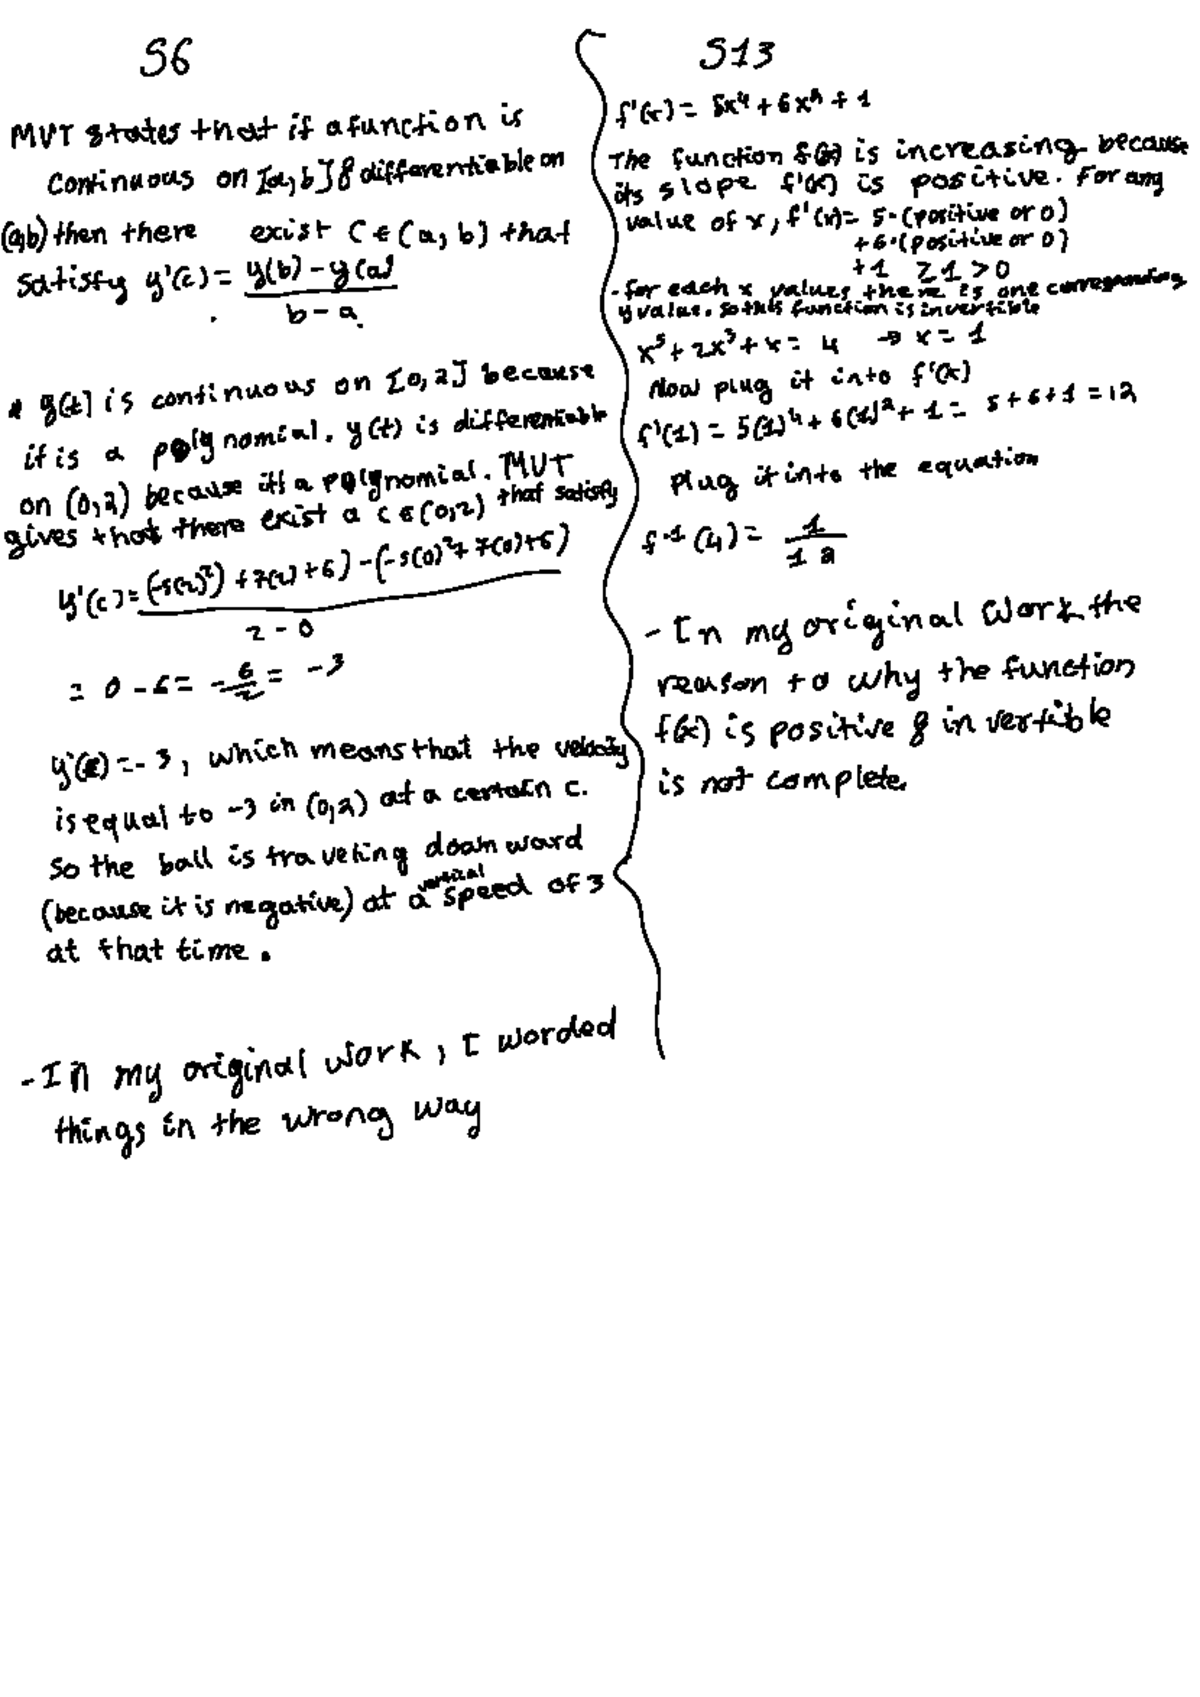 S6
MVT states that if a function is
continuous on [a, b] & differentiable on
(a,b) then there exist C ∈ (a, b) that
satisfy y'(c) = y(b) - y(a)
b - a
y(t) is continuous on [0, 2] because
it is a polynomial. y(t) is differentiable
on (0,2) because it's a polynomial. MVT
gives that there exist a c ∈ (0,2) that satisfy
y'(c) = (-5(2)²) + 7(2) + 6) - (-5(0)² + 7(0) + 6)
2 - 0
= 0 - 6 = - 6/2 = -3
y'(c) = - 3, which means that the velocity
is equal to -3 in (0,2) at a certain c.
So the ball is traveling downward
(because it is negative) at a vertical speed of 3
at that time.
- In my original work, I worded
things in the wrong way
S13
f'(x) = 5x⁴ + 6x² + 1
The function f(x) is increasing because
its slope f'(x) is positive. For any
value of x, f'(x) = 5·(positive or 0)
+ 6·(positive or 0)
+1 ≥ 1 > 0
- for each x values there is one corresponding
y value. So this function is invertible
x⁵ + 2x³ + x = 4 → x = 1
Now plug it into f'(x)
f'(1) = 5(1)⁴ + 6(1)² + 1 = 5 + 6 + 1 = 12
plug it into the equation
f⁻¹ (4) = 1
12
- In my original work the
reason to why the function
f(x) is positive & invertible
is not complete.